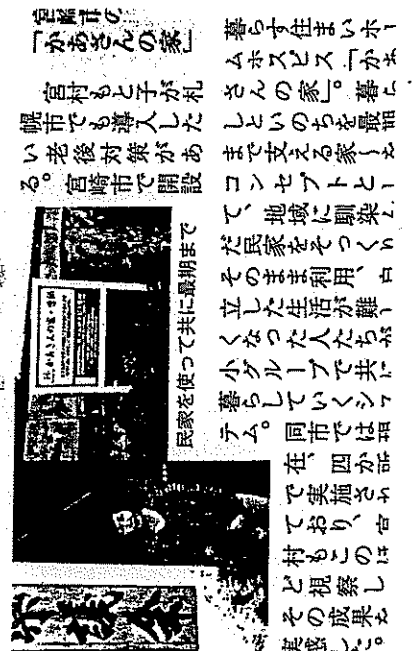 宮崎市の
「かあさんの家」
宮村もと子が札
幌市でも導入した
い老後対策があ
る。宮崎市で開設
かあさんの家・
民家を使って共に最期まで
暮らす住まいホ
ムホスピス「かあ
さんの家」。暮ら
しといのちを最期
まで支える家を
コンセプトとし
て、地域に馴染ん
だ民家をそっくり
そのまま利用、自
立した生活が難し
くなった人たちが
小グループで共に
暮らしていくシス
テム。同市では現
在、四か所
で実施され
ており、宮
村もこのほ
ど視察し
その成果を
実感した。